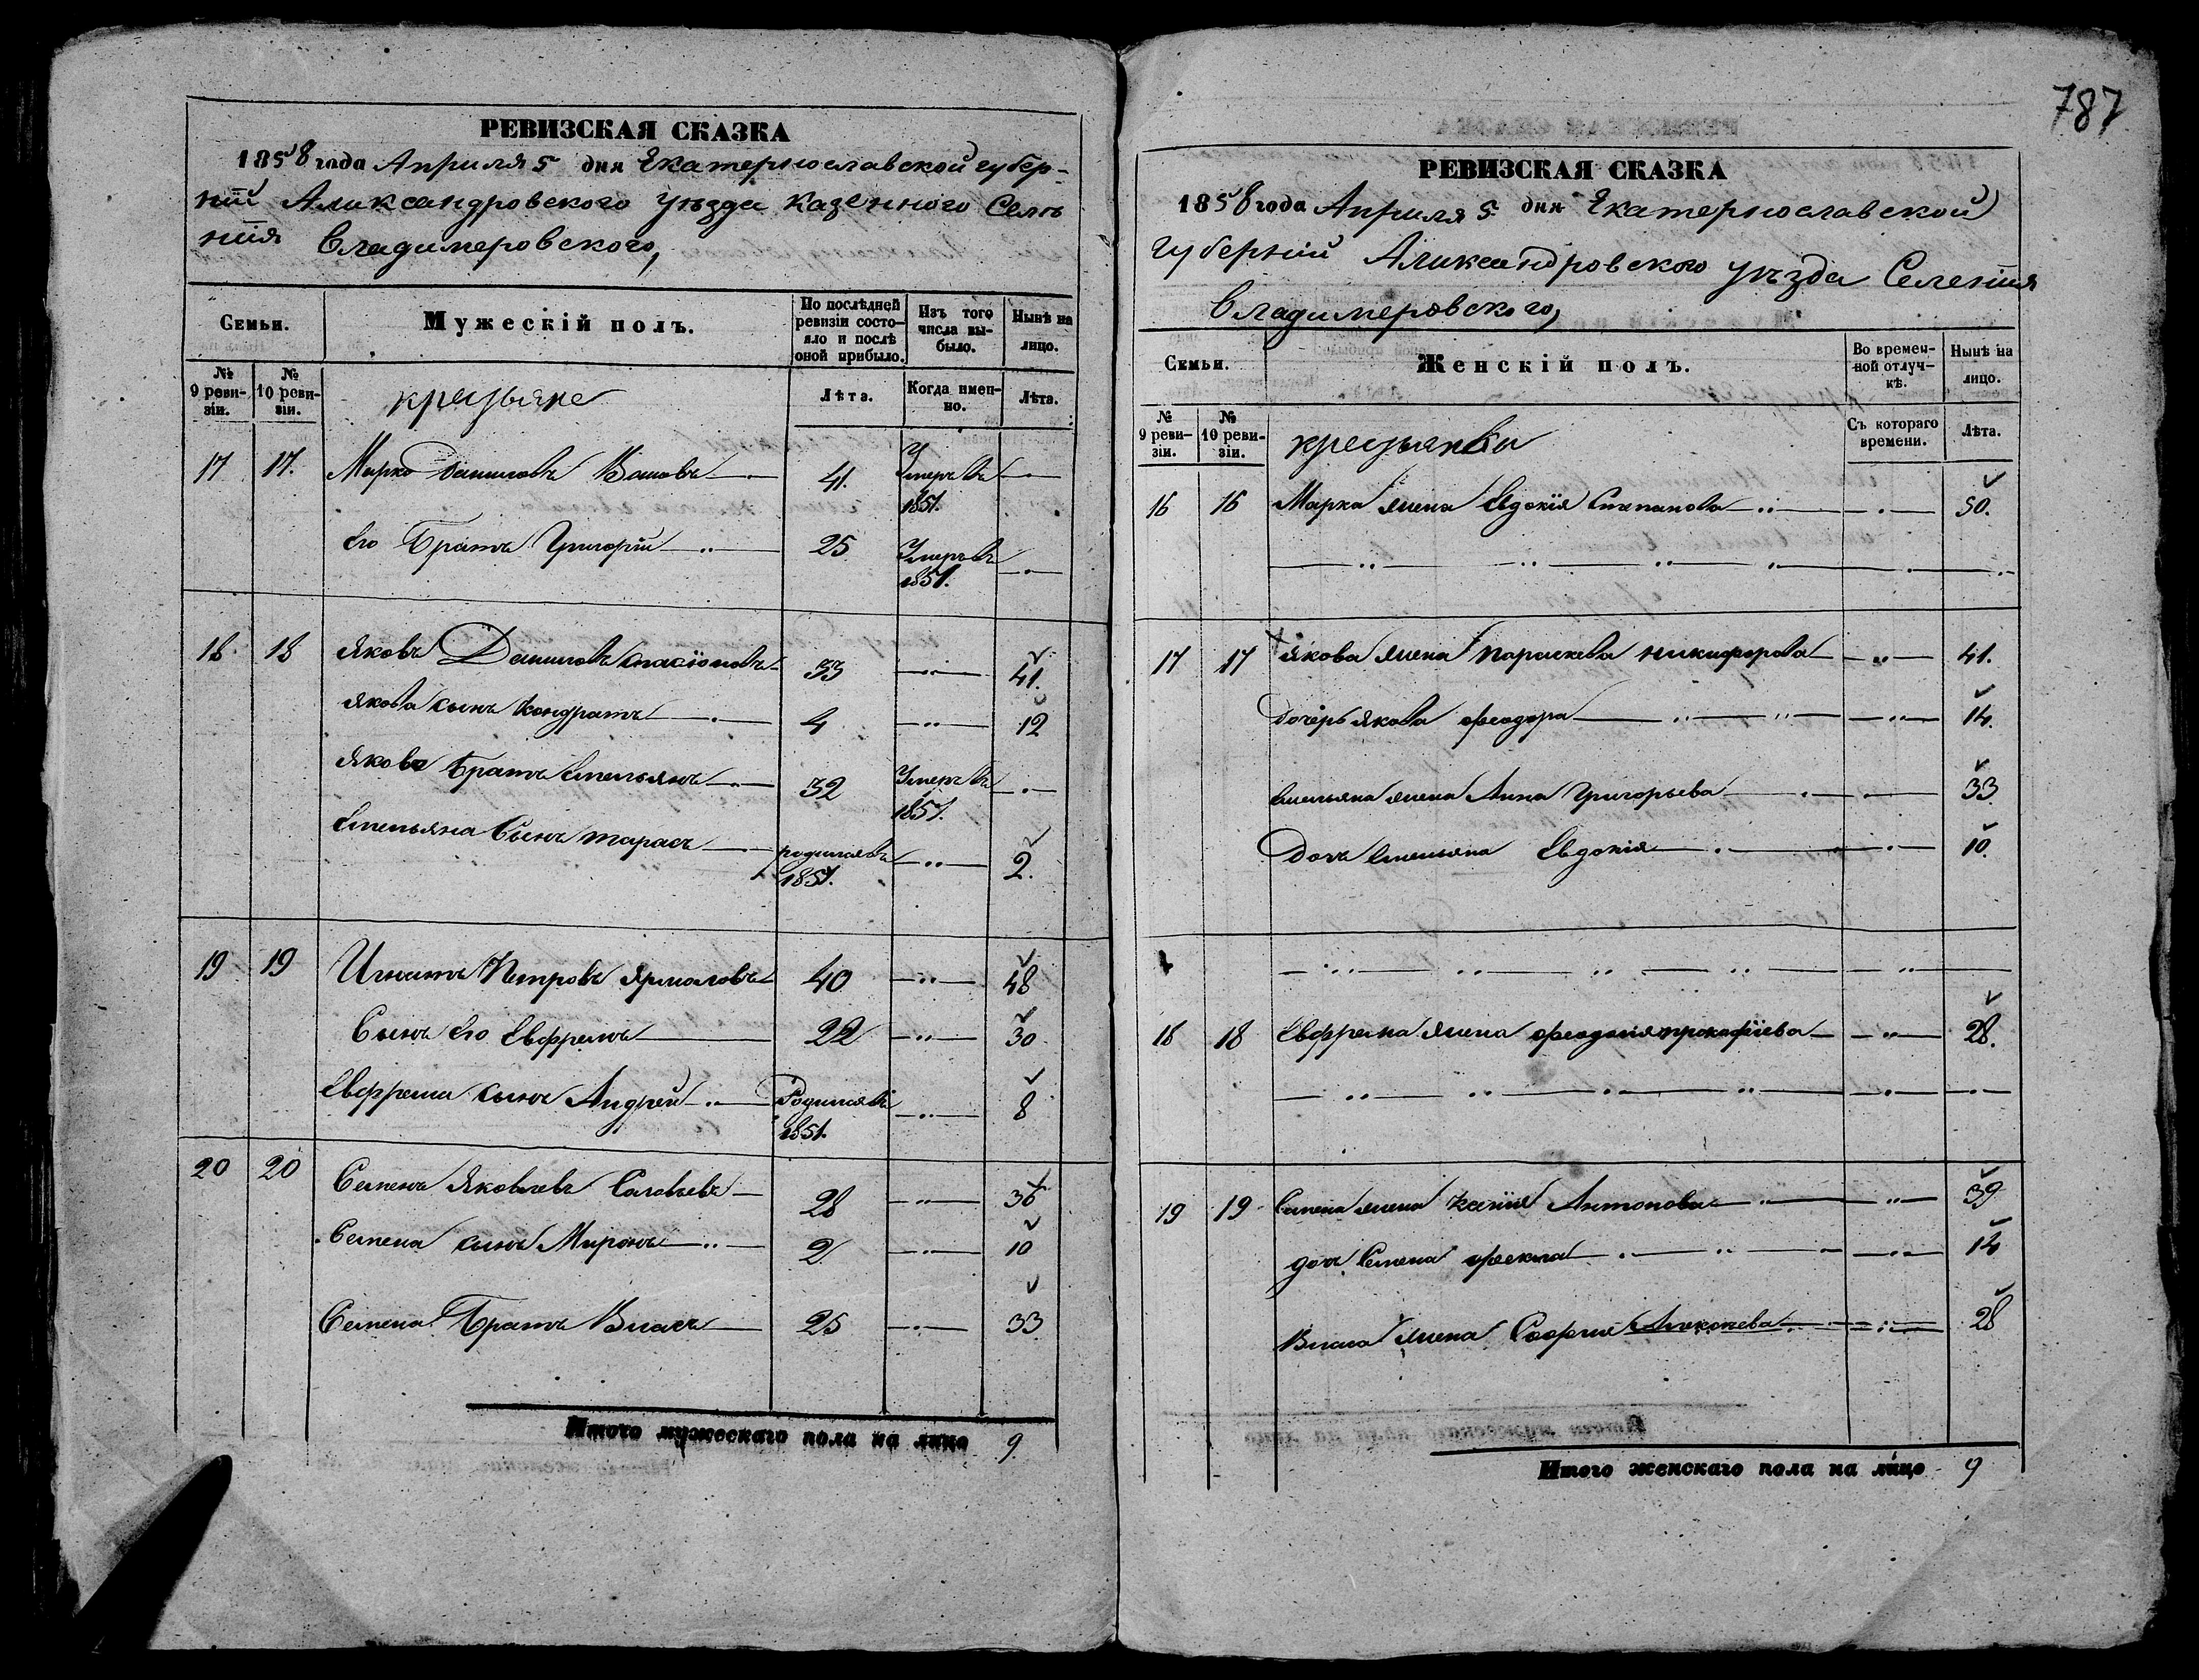 787
РЕВИЗСКАЯ СКАЗКА
1858 года Апреля 5 дня Екатеринославской губер-
нїи Александровского уъзда казенного Селе
нїя Владимеровского,
Семьи.
Мужескій полъ.
По послѣдней ревизіи состо-
яло и послѣ
оной прибыло.
Изъ того
числа вы-
было.
Нынѣ на
лицо.
№
9 реви-
зіи.
№
10 реви-
зіи.
крезьяне
Лѣта.
Когда имен-
но.
Лѣта.
17 17. Марко Даниловъ 41. Умеръ въ
1851.
его Братъ Григорїй 25 Умеръ въ
1851.
18 18 Яковъ Даниловъ 33 41.
Якова сынъ Кондратъ 4 12
Якова Братъ Емельянъ 32 Умеръ въ
1857.
Емельяна Сынъ Тарасъ родился въ
1857. 2.
19 19 Игнатъ Петровъ Ярмоловъ 40 48
Сынъ его Евфремъ 22 30
Евфрема сынъ Андрей Родился въ
1851. 8
20 20 Семенъ Яковлевъ Соловьевъ 28 36
Семена сынъ Миронъ 2 10
Семена Братъ Власъ 25 33
Итого мужескаго пола на лицо 9.
РЕВИЗСКАЯ СКАЗКА
1858 года Апреля 5 дня Екатеринославской
губернїи Александровского уъзда Селенїя
Владимеровского,
Семьи.
Женскій полъ.
Во времен-
ной отлуч-
кѣ.
Нынѣ на
лицо.
№
9 реви-
зіи.
№
10 реви-
зіи.
крезьянки
Съ котораго
времени.
Лѣта.
16 16 Марка жена Евдокїя Степанова 50.
17 17 Якова жена Параскева Никифорова 41.
Дочерь Якова Феодора 14.
Емельяна жена Анна Григорьева 33
Дочь Емельяна Евдокїя 10.
18 18 Евфрема жена Феодосїя Прокофїева 28.
19 19 Семена жена Ксенїя Антонова 39
дочь Семена Фекла 14
Власа жена Софїя 28
Итого женскаго пола на лицо 9